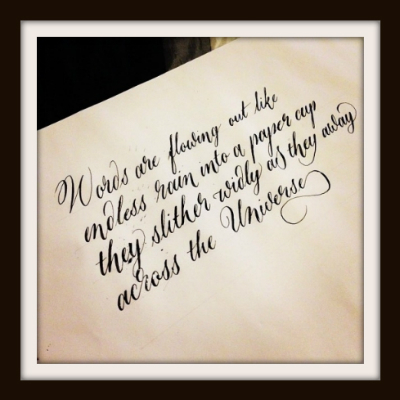 Words are flowing out like
endless rain into a paper cup
they slither widly as they away
across the Universe